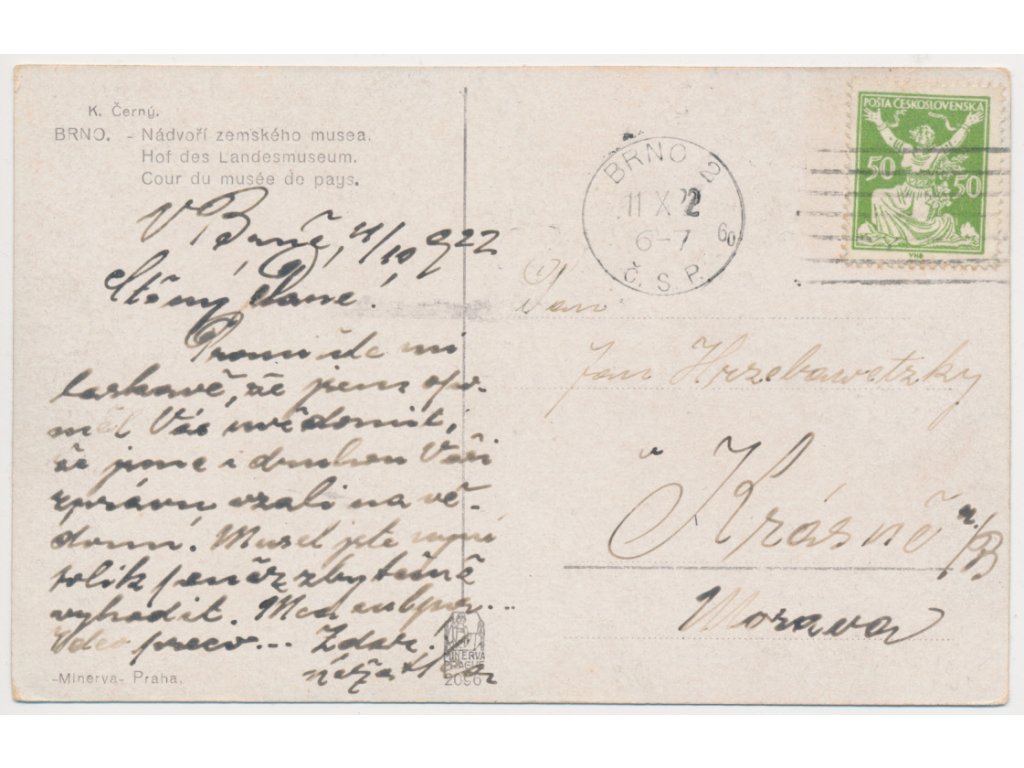 K. Černý.
BRNO. - Nádvoří zemského musea.
Hof des Landesmuseum.
Cour du musée de pays.
V Brně, 11/10 922
Ctěný Pane!
Promiňte mi
laskavě, že jsem opo-
měl Vás uvědomit,
že jsme i druhou Vaši
zprávu vzali na vě-
domí. Musel jste nyní
tolik peněz zbytečně
vyhodit.
... Zdar!
-Minerva- Praha.
MINERVA
PRAGUE
2096
BRNO 2
11 X 22
6-7 60
Č. S. P.
POŠTA ČESKOSLOVENSKA
50 50
VHB
Pan
Jan Hrzebawetzky
v Krásně n/B
Morava